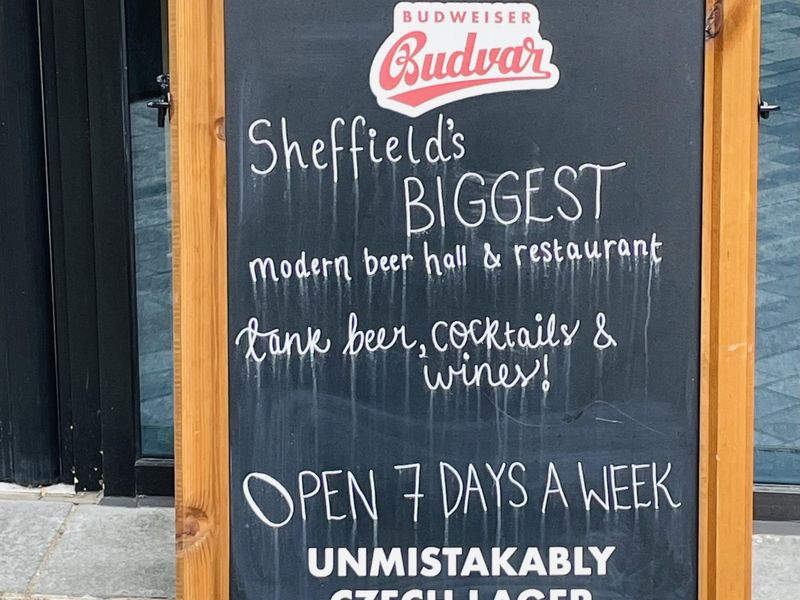 BUDWEISER
Budvar
Sheffield's
BIGGEST
modern beer hall & restaurant
tank beer, cocktails &
wines!
OPEN 7 DAYS A WEEK
UNMISTAKABLY
CZECH LAGER